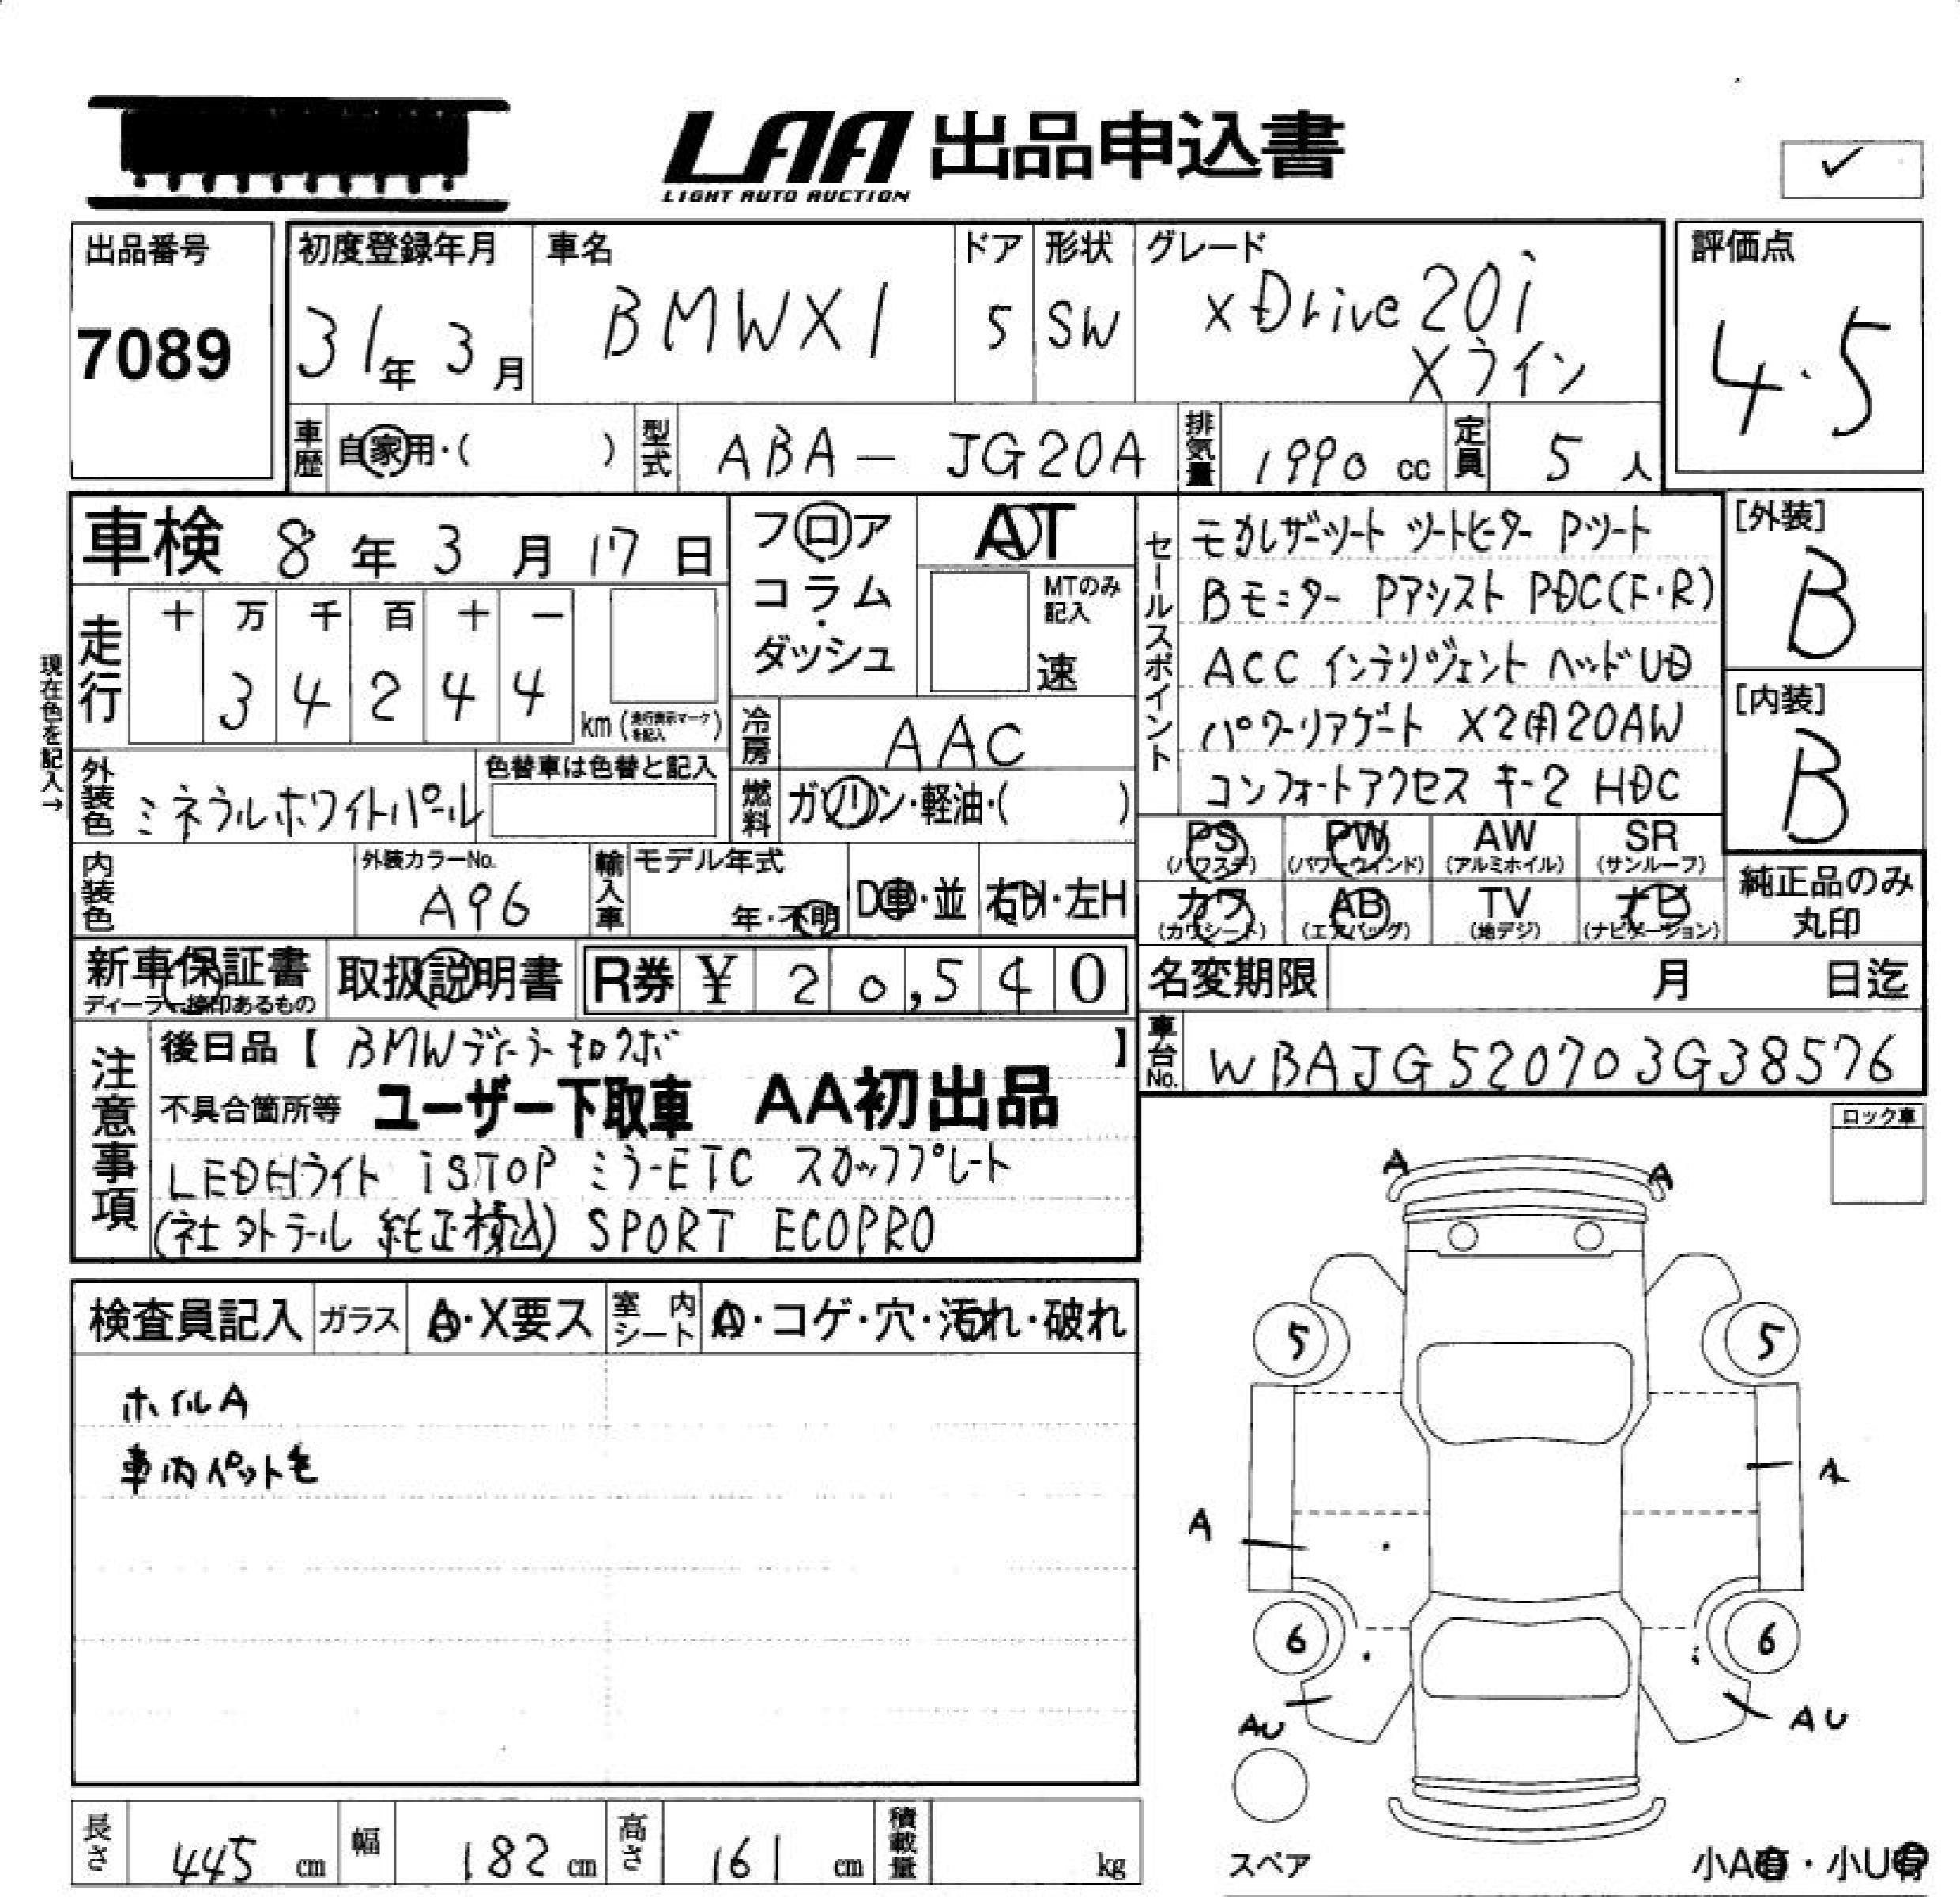 LAA 出品申込書
LIGHT AUTO AUCTION
✓
出品番号
7089
初度登録年月
31年 3月
車名
BMWX1
ドア
5
形状
SW
グレード
xDrive20i
Xライン
評価点
4.5
車歴 自家用・( )
型式 ABA- JG20A
排気量 1990 cc
定員 5 人
車検 8年 3月 17日
フロア
コラム
・
ダッシュ
AT
MTのみ
記入
速
セールスポイント
モカレザーシート シートヒーター Pシート
Bモニター Pアシスト PDC(F・R)
ACC インテリジェント ヘッドUD
パワーリアゲート X2用20AW
コンフォートアクセス キー2 HDC
[外装]
B
[内装]
B
現在色を記入→
走行
十 万 千 百 十 一
3 4 2 4 4
km (走行表示マークを記入)
冷房 AAC
外装色 ミネラルホワイトパール
色替車は色替と記入
燃料 ガソリン・軽油・( )
PS (パワステ) PW (パワーウィンド) AW (アルミホイル) SR (サンルーフ)
カワ (カワシート) AB (エアバッグ) TV (地デジ) ナビ (ナビゲーション)
純正品のみ
丸印
内装色
外装カラーNo.
A96
輸入車
モデル年式
年・不明
D車・並
右H・左H
新車保証書
ディーラー捺印あるもの
取扱説明書
R券 ¥ 20,540
名変期限 月 日迄
車台No. WBAJG520703G38576
注意事項
後日品【 BMWデイーラー 】
不具合箇所等 ユーザー下取車 AA初出品
LEDHライト iSTOP ミラーETC スカッフプレート
(社外テール 純正積込) SPORT ECOPRO
ロック車
検査員記入 ガラス A・X要ス 室内シート A・コゲ・穴・汚れ・破れ
ホイルA
車内ペット毛
A A
5 5
A
A
6 6
AU AU
スペア
小A有・小U有
長さ 445 cm 幅 182 cm 高さ 161 cm 積載量 kg